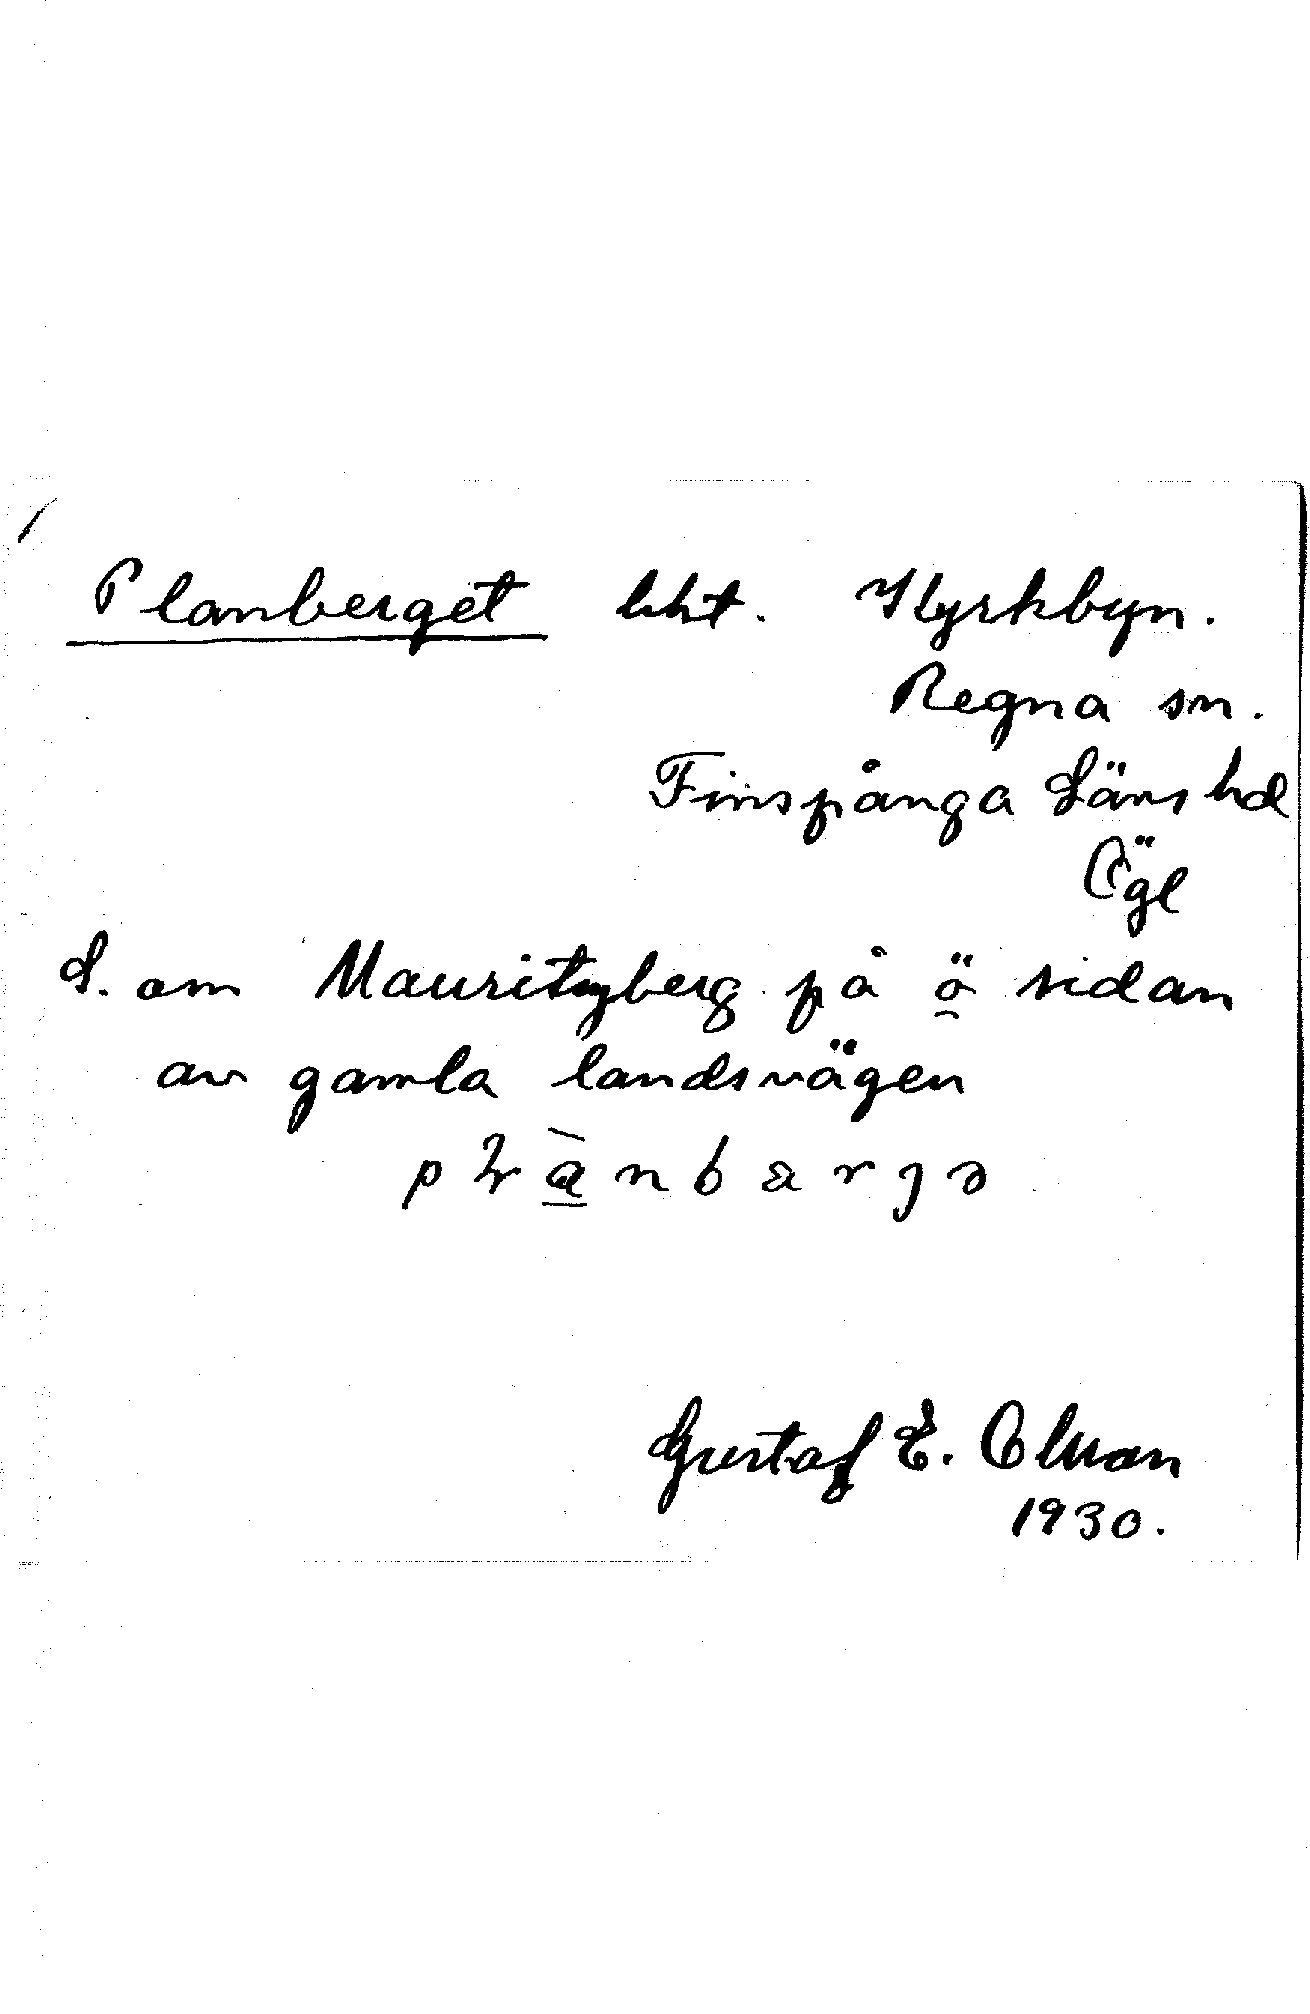 Planberget bht. Kyrkbyn.
Regna sn.
Finspånga Läns hd
Ögl
S. om Mauritzberg på ö sidan
av gamla landsvägen
Gustaf E. Olsson
1930.